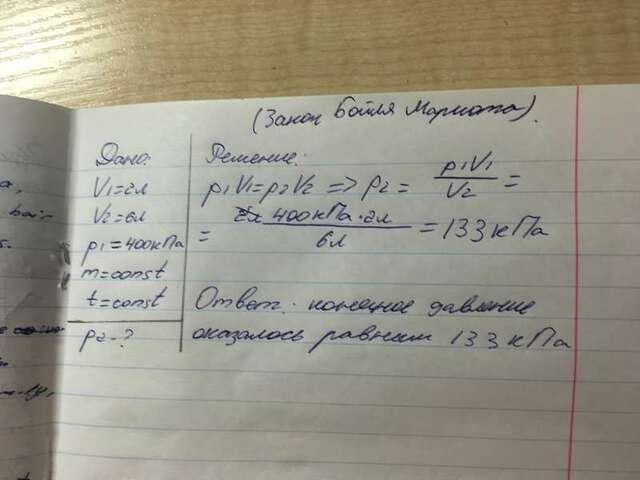 (Закон Бойля Мариотта).
Дано:
V₁=2л
V₂=6л
p₁=400кПа
m=const
t=const
p₂-?
Решение:
p₁V₁=p₂V₂ => p₂ = p₁V₁/V₂ =
= 400кПа·2л/6л = 133кПа
Ответ: конечное давление
оказалось равным 133кПа